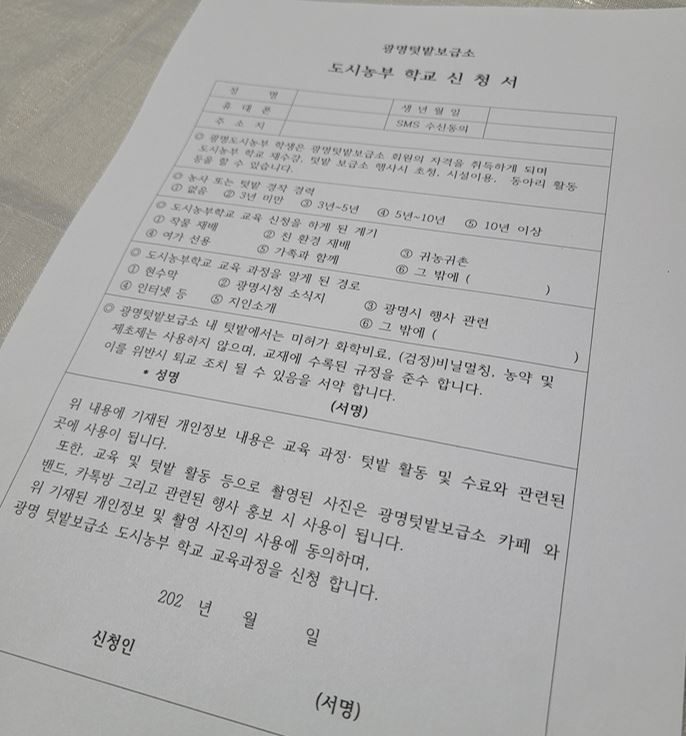 광명텃밭보급소
도시농부 학교 신 청 서
성 명 생 년 월 일
휴 대 폰 SMS 수신동의
주 소 지
◎ 광명도시농부 학생은 광명텃밭보급소 회원의 자격을 취득하게 되며
도시농부 학교 재수강, 텃밭 보급소 행사시 초청, 시설이용, 동아리 활동
등을 할 수 있습니다.
◎ 농사 또는 텃밭 경작 경력
① 없음 ② 3년 미만 ③ 3년~5년 ④ 5년~10년 ⑤ 10년 이상
◎ 도시농부학교 교육 신청을 하게 된 계기
① 작물 재배 ② 친 환경 재배 ③ 귀농귀촌
④ 여가 선용 ⑤ 가족과 함께 ⑥ 그 밖에 ( )
◎ 도시농부학교 교육 과정을 알게 된 경로
① 현수막 ② 광명시청 소식지 ③ 광명시 행사 관련
④ 인터넷 등 ⑤ 지인소개 ⑥ 그 밖에 ( )
◎ 광명텃밭보급소 내 텃밭에서는 미허가 화학비료, (검정)비닐멀칭, 농약 및
제초제는 사용하지 않으며, 교재에 수록된 규정을 준수 합니다.
이를 위반시 퇴교 조치 될 수 있음을 서약 합니다.
* 성명 (서명)
위 내용에 기재된 개인정보 내용은 교육 과정· 텃밭 활동 및 수료와 관련된
곳에 사용이 됩니다.
또한, 교육 및 텃밭 활동 등으로 촬영된 사진은 광명텃밭보급소 카페 와
밴드, 카톡방 그리고 관련된 행사 홍보 시 사용이 됩니다.
위 기재된 개인정보 및 촬영 사진의 사용에 동의하며,
광명 텃밭보급소 도시농부 학교 교육과정을 신청 합니다.
202 년 월 일
신청인 (서명)